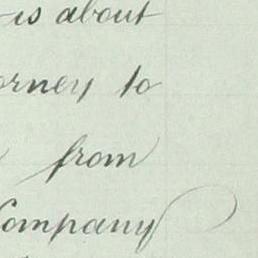 is about
orney to
from
Company